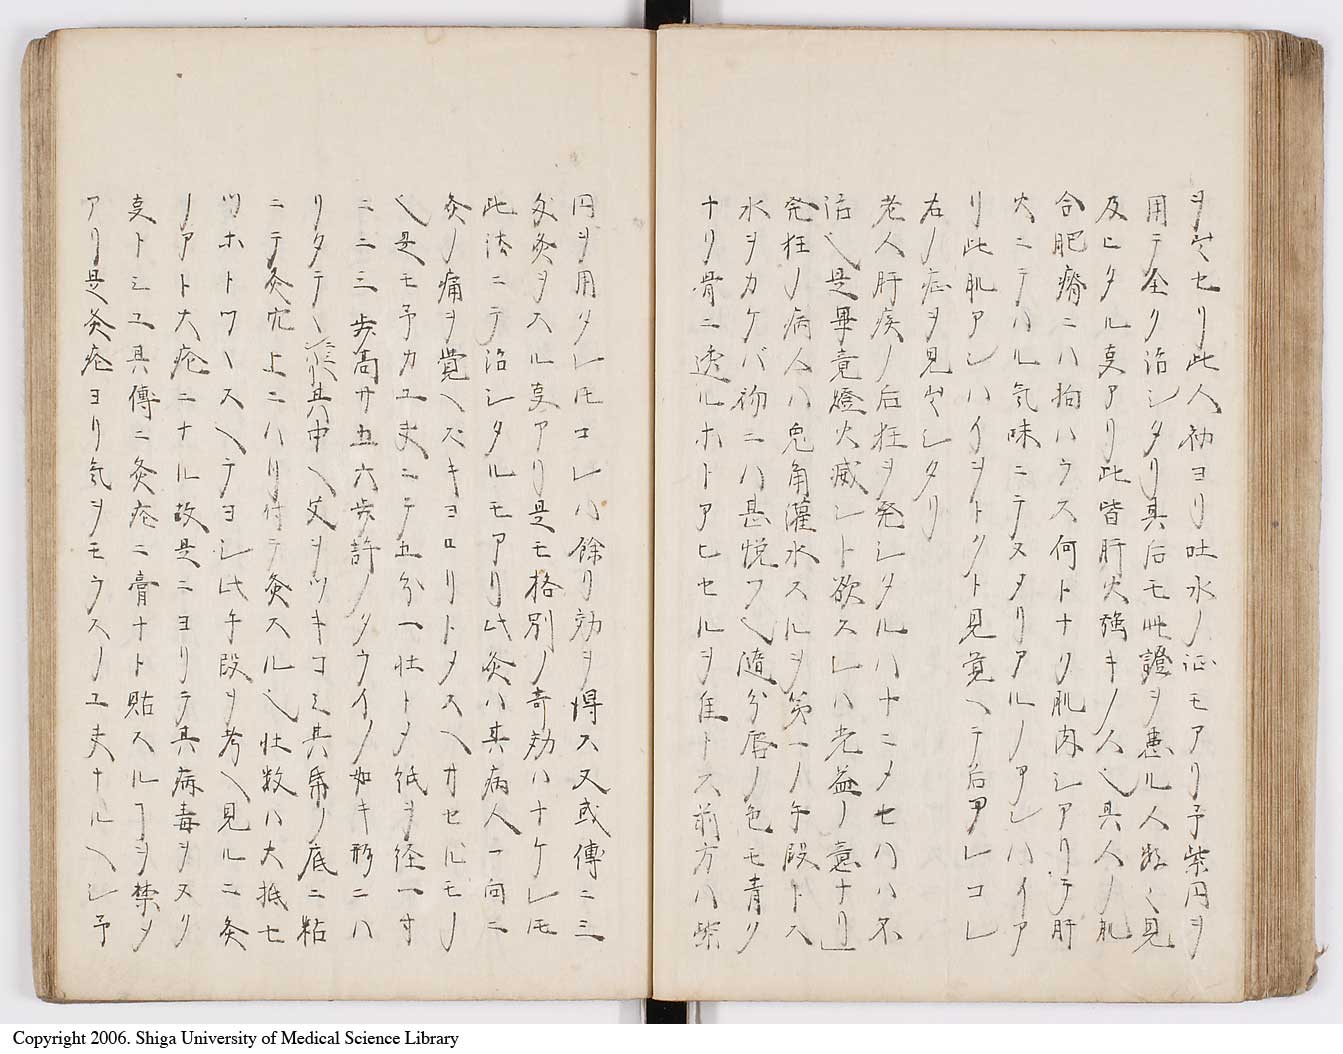 ヲ発セリ此人初ヨリ吐水ノ証モアリ予紫円ヲ
用テ全ク治シタリ其后モ此證ヲ患ル人数々見
及ヒタル叓アリ此皆肝火強キノ人也具人ノ肌
合肥瘠ニハ拘ハラス何トナク肌肉シアリテ肝
火ニテハル気味ニテヌタリアルノアレハイア
リ此肌アレハイヲトクト見覚ヘテ后甲レコレ
右ノ症ヲ見出シタリ
老人肝疾ノ后狂ヲ発シタルハナニメセハハ不
治也是畢竟燈火威レト欲スレハ光益ノ意ナリ
発狂ノ病人ハ兎角灌水スルヲ第一ノ手段トス
水ヲカケバ初ニハ甚悦フ也随分唇ノ色モ青ク
ナリ骨ニ透ルホトアヒセルヲ佳トス前方ハ紫
円ヲ用タレ𪜈コレハ餘リ効ヲ得ス又或傳ニ三
爻灸ヲスル叓アリ是モ格別ノ奇効ハナケレ𪜈
此法ニテ治シタルモアリ此灸ハ其病人一向ニ
灸ノ痛ヲ覚ヘズキヨロリトメスヘサセルモノ
也是モ予カ工夫ニテ五分一壮トメ紙ヲ経一寸
ニ二三歩高サ五六歩許ノタウイノ如キ形ニハ
リタテヽ其中ヘ艾ヲツキコミ其帋ノ底ニ粘
ニテ灸穴上ニハリ付テ灸スル也壮数ハ大抵七
ツホトツヽスヘテヨシ此手段ヲ考ヘ見ルニ灸
ノアト大疮ニナル故是ニヨリテ其病毒ヲヌク
叓トミユ具傳ニ灸疮ニ膏ナト貼スルヿヲ禁メ
アリ是灸疮ヨリ気ヲモラスノ工夫ナルヘシ予
Copyright 2006. Shiga University of Medical Science Library